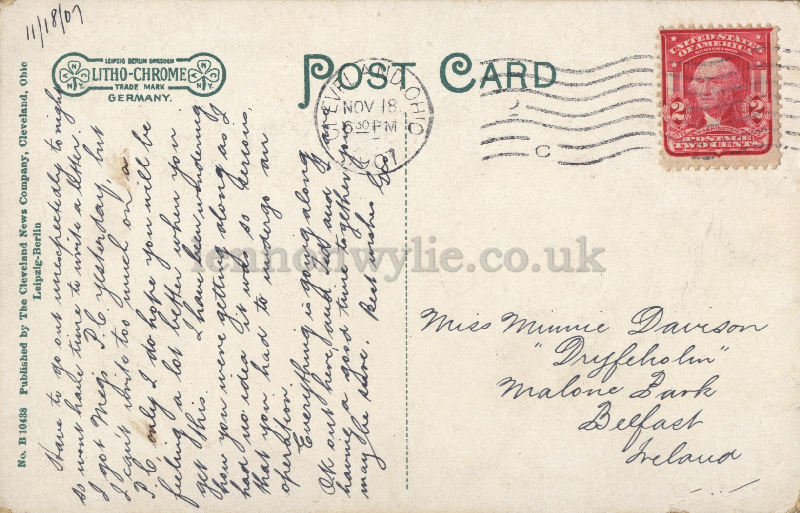 11/18/07
LEIPZIG BERLIN DRESDEN
LITHO-CHROME
TRADE MARK
GERMANY.
POST CARD
CLEVELAND, OHIO
NOV 18
6 30 PM
1907
UNITED STATES
OF AMERICA
2 2
WASHINGTON
POSTAGE
TWO CENTS
No. B 10438 Published by The Cleveland News Company, Cleveland, Ohio
Leipzig-Berlin
Have to go out unexpectedly to-night
so wont have time to write a letter.
I got Megs P.C. yesterday, but
I can't write too much on a
P.C. only I do hope you will be
feeling a lot better when you
get this. I have been wondering
how you were getting along as I
had no idea it was so serious,
that you had to undergo an
operation.
Everything is going along
OK out here, and and I are
having a good time together you
may be sure. Best wishes
Miss Minnie Davison
"Dryfeholm"
Malone Park
Belfast
Ireland
lennonwylie.co.uk